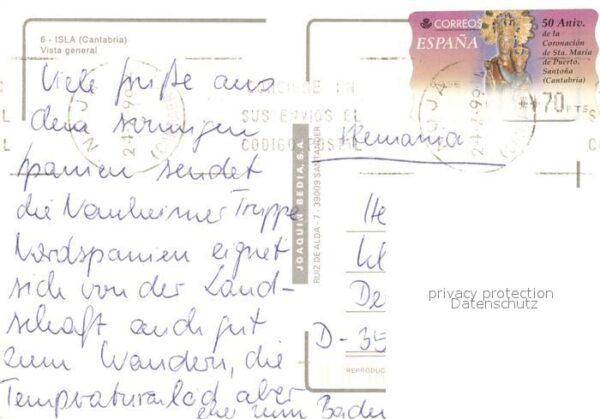 6 - ISLA (Cantabria)
Vista general
Viele Grüße aus
dem sonnigen
Spanien sendet
die Nauheimer Truppe
Nordspanien eignet
sich von der Land-
schaft auch gut
zum Wandern, die
Tempraturen lad aber
eher zum Baden
CORREOS
ESPAÑA
50 Aniv.
de la
Coronación
de Sta. María
de Puerto.
Santoña
(Cantabria)
**70 PTS
SUS ENVIOS EL
CODIGO POSTAL
JOAQUIN BEDIA, S.A.
RUIZ DE ALDA - 7 - 39009 SANTANDER
Alemania
He
Kl
De
D - 35
REPRODUC
privacy protection
Datenschutz